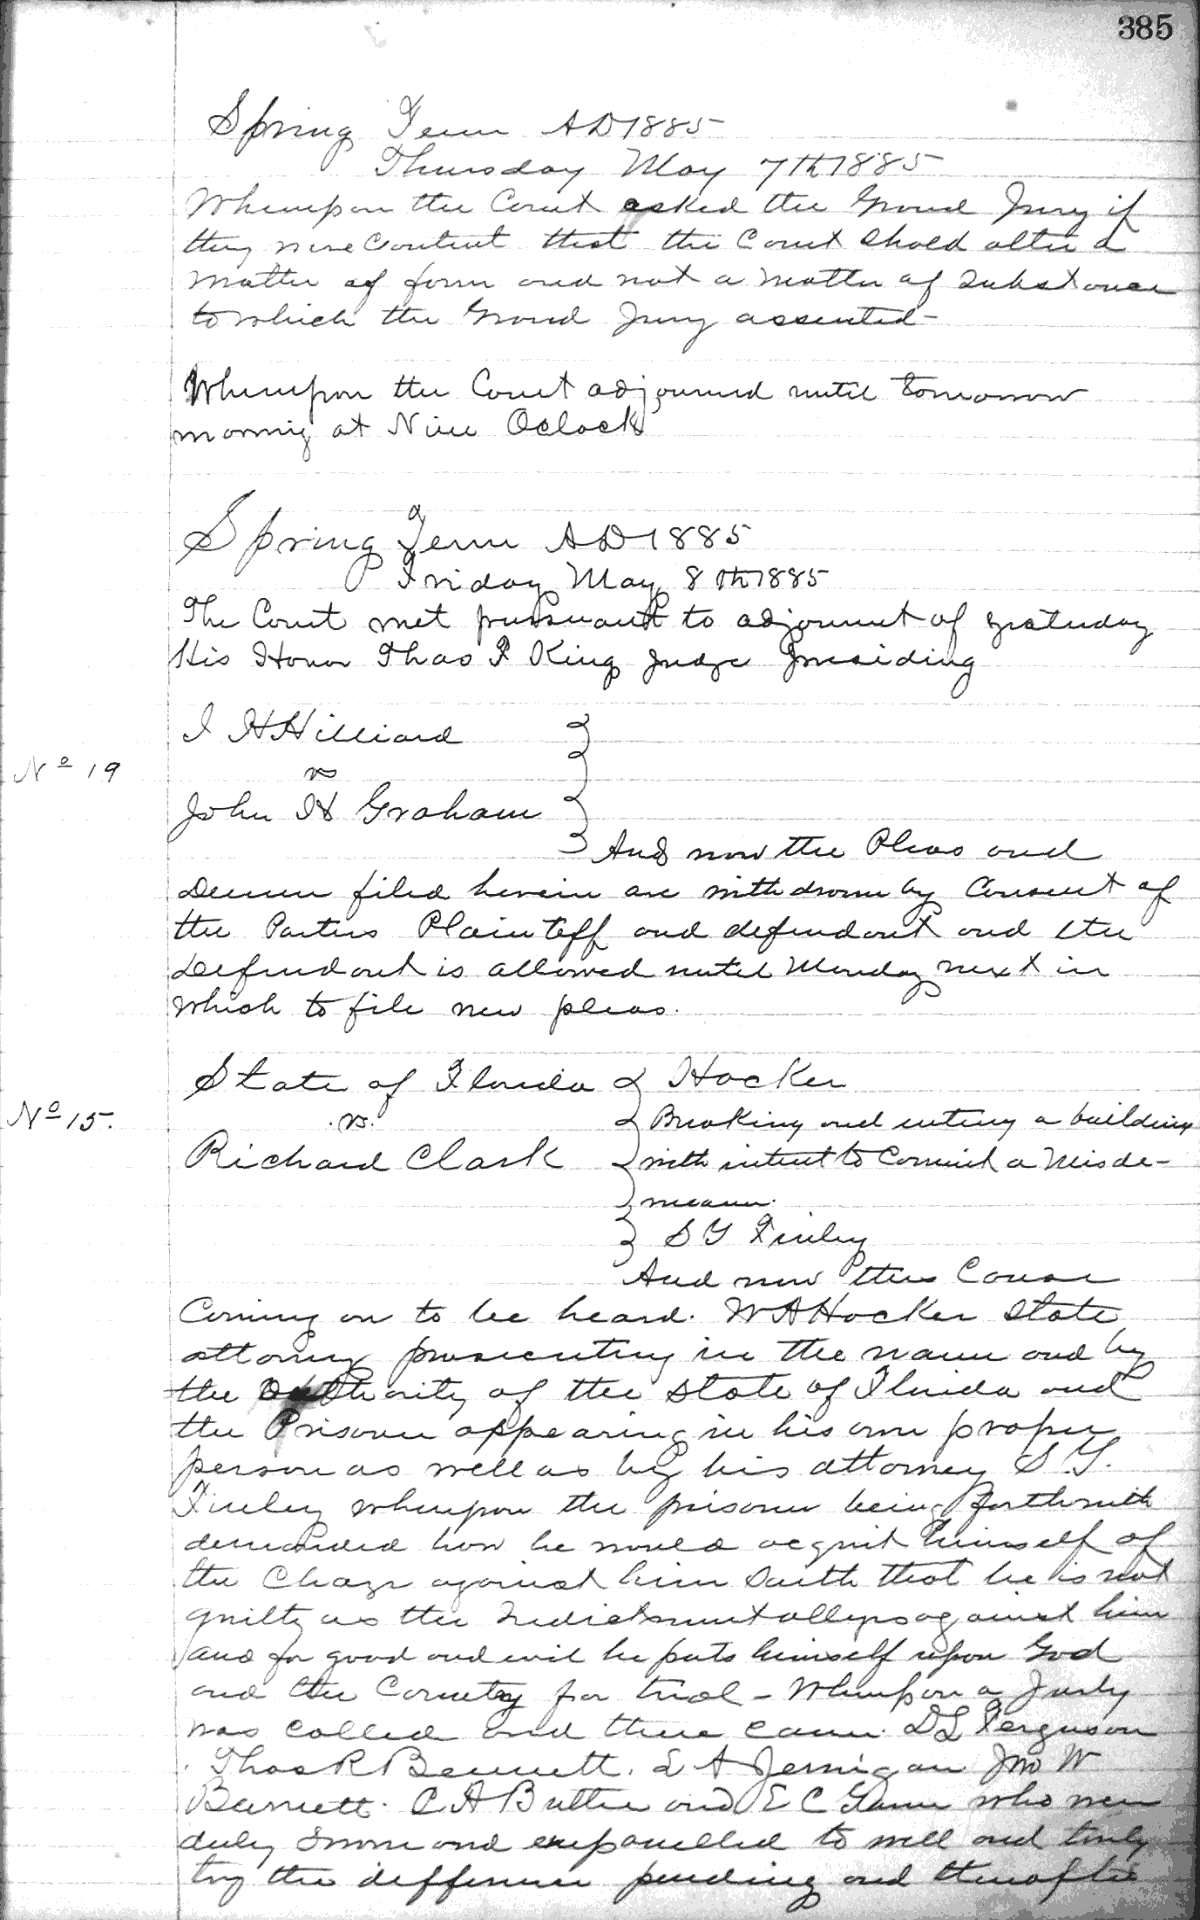 385
Spring Term AD 1885
Thursday May 7th 1885
Whereupon the Court asked the Grand Jury if
they were Content that the Court Shold alter a
matter of form and not a matter of Substance
to which the Grand Jury assented-
Whereupon the Court adjourned until tomorrow
morning at Nine Oclock
Spring Term AD 1885
Friday May 8th 1885
The Court met pursuant to adjournmt of yesterday
His Honor Thos F King Judge Presiding
I H Hilliard
No 19
vs
John H Graham
And now the Pleas and
Demur filed herein are withdrawn by Consent of
the Parties Plaintiff and defendant and the
Defendant is allowed until Monday next in
which to file new pleas.
State of Florida } Hocker
No 15.
vs. } Breaking and entering a building
Richard Clark } with intent to Commit a Misde-
meanor.
S G Finley
And now this Cause
Coming on to be heard. W A Hocker State
attorney prosecuting in the name and by
the authority of the State of Florida and
the Prisoner appearing in his own proper
person as well as by his attorney S. G.
Finley whereupon the prisoner being forthwith
demanded how he would acquit himself of
the Charge against him Saith that he is not
guilty as the Indictment alleges against him
and for good and evil he puts himself upon God
and the Country for trial - Whereupon a Jury
was called and there came. D L Ferguson
Thos R Bennett. E A Jernigan Jno W
Barnett. C A Butler and E C who were
duly Sworn and empanelled to well and truly
try the difference pending and thereafter